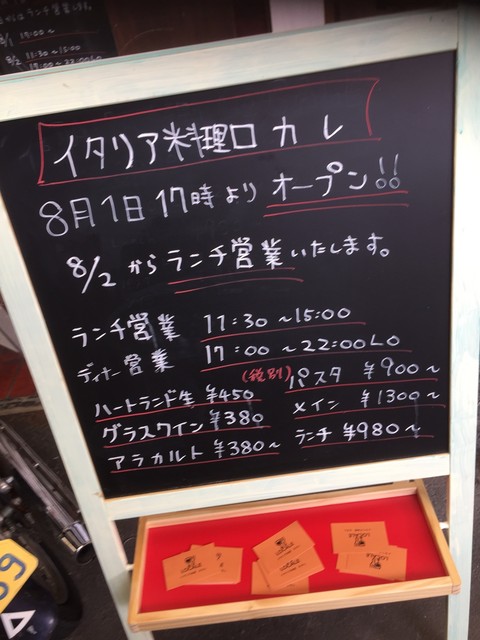 8/1 17:00~
8/2 11:30~15:00
イタリア料理ロカレ
8月1日17時よりオープン!!
8/2からランチ営業いたします。
ランチ営業 11:30~15:00
ディナー営業 17:00~22:00LO
(税別)
ハートランド生 ¥450
パスタ ¥900~
グラスワイン ¥380
メイン ¥1300~
アラカルト ¥380~
ランチ ¥980~